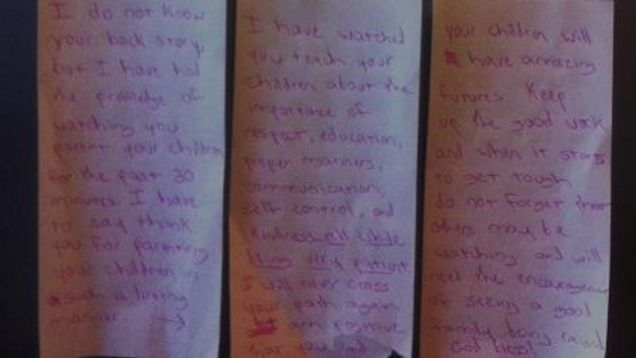 I do not know
your back story,
but I have had
the privledge of
watching you
parent your children
for the past 30
minutes. I have
to say thank
you for parenting
your children in
such a loving
manner →
I have watched
you teach your
children about the
importance of
respect, education,
proper manners,
communication,
self control, and
kindness all while
being very patient.
I will never cross
your path again
am positive
that you and
your children will
have amazing
futures. Keep
up the good work
and when it starts
to get tough
do not forget that
others may be
watching and will
need the encouragement
of seeing a good
family being raised.
God bless!